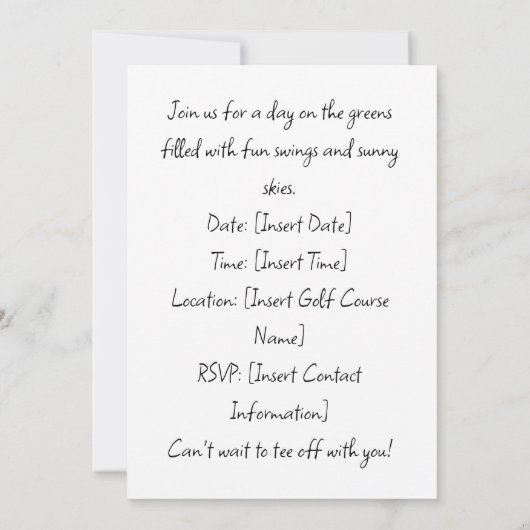 Join us for a day on the greens
filled with fun swings and sunny
skies.
Date: [Insert Date]
Time: [Insert Time]
Location: [Insert Golf Course
Name]
RSVP: [Insert Contact
Information]
Can't wait to tee off with you!